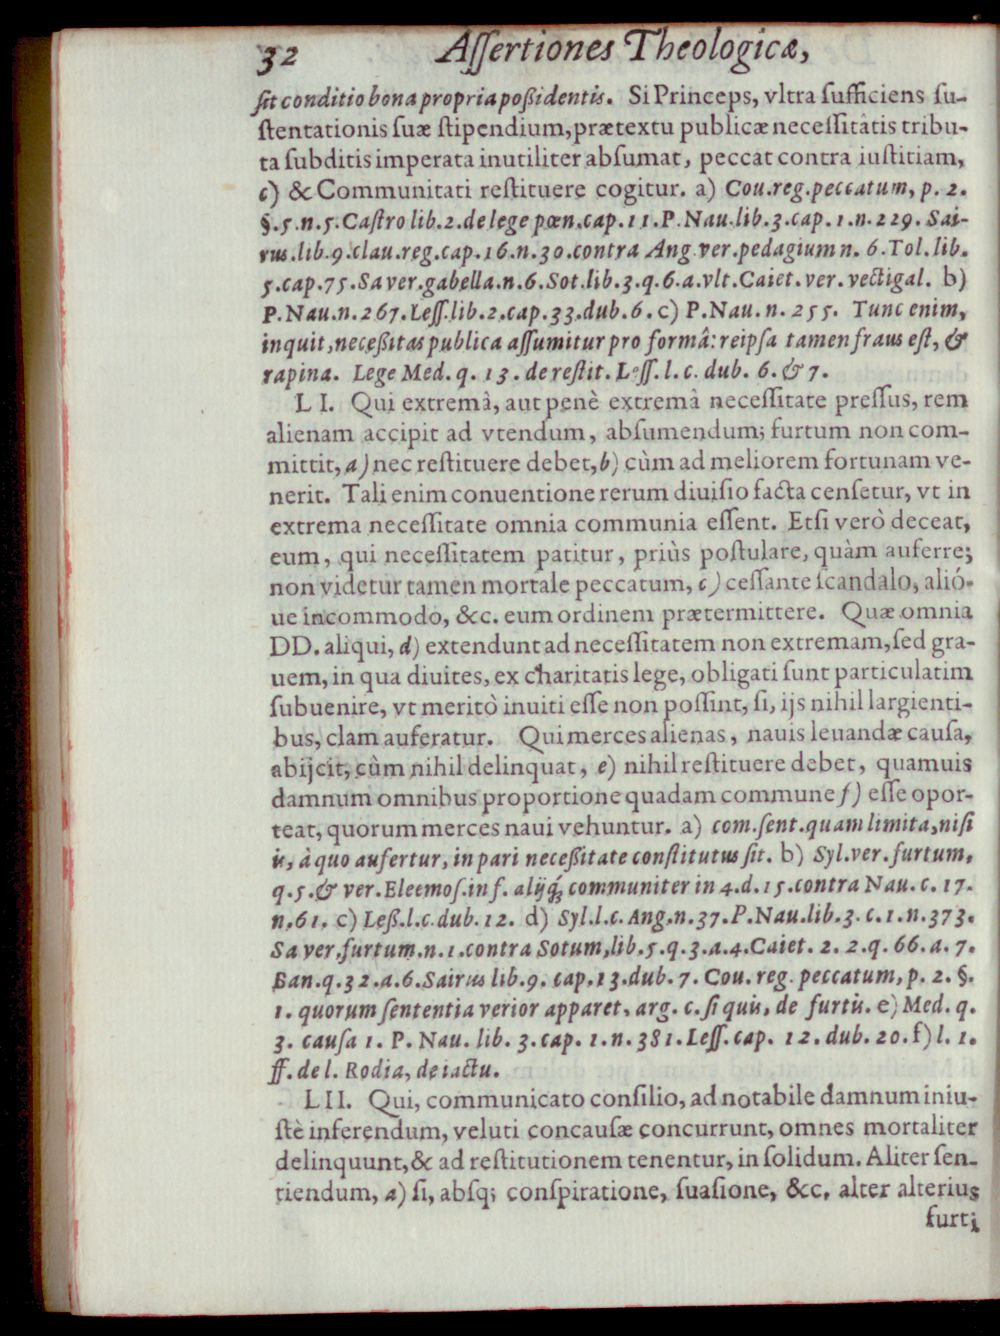 32 Aſſertiones Theologicæ,
ſit conditio bona propria poßidentis. Si Princeps, vltra ſufficiens ſu-
ſtentationis ſuæ ſtipendium, prætextu publicæ neceſſitatis tribu-
ta ſubditis imperata inutiliter abſumat, peccat contra iuſtitiam,
c) & Communitati reſtituere cogitur. a) Cou. reg. peccatum, p. 2.
§. 5. n. 5. Caſtro lib. 2. de lege pœn. cap. 11. P. Nau. lib. 3. cap. 1. n. 229. Sai-
rus. lib. 9. clau. reg. cap. 16. n. 30. contra Ang. ver. pedagium n. 6. Tol. lib.
5. cap. 75. Sa ver. gabella. n. 6. Sot. lib. 3. q. 6. a. vlt. Caiet. ver. vectigal. b)
P. Nau. n. 267. Leſſ. lib. 2. cap. 33. dub. 6. c) P. Nau. n. 255. Tunc enim,
inquit, neceßitas publica aſſumitur pro formâ: reipſa tamen fraus eſt, &
rapina. Lege Med. q. 13. de reſtit. Leſſ. l. c. dub. 6. & 7.
LI. Qui extremâ, aut penè extremâ neceſſitate preſſus, rem
alienam accipit ad vtendum, abſumendum; furtum non com-
mittit, a) nec reſtituere debet, b) cùm ad meliorem fortunam ve-
nerit. Tali enim conuentione rerum diuiſio facta cenſetur, vt in
extrema neceſſitate omnia communia eſſent. Etſi verò deceat,
eum, qui neceſſitatem patitur, priùs poſtulare, quàm auferre;
non videtur tamen mortale peccatum, c) ceſſante ſcandalo, alió-
ue incommodo, &c. eum ordinem prætermittere. Quæ omnia
DD. aliqui, d) extendunt ad neceſſitatem non extremam, ſed gra-
uem, in qua diuites, ex charitatis lege, obligati ſunt particulatim
ſubuenire, vt meritò inuiti eſſe non poſſint, ſi, ijs nihil largienti-
bus, clam auferatur. Qui merces alienas, nauis leuandæ cauſa,
abijcit, cùm nihil delinquat, e) nihil reſtituere debet, quamuis
damnum omnibus proportione quadam commune f) eſſe opor-
teat, quorum merces naui vehuntur. a) com. ſent. quam limita, niſi
is, à quo aufertur, in pari neceßitate conſtitutus ſit. b) Syl. ver. furtum,
q. 5. & ver. Eleemoſ. in f. alijq́ꝫ communiter in 4. d. 15. contra Nau. c. 17.
n. 61. c) Leß. l. c. dub. 12. d) Syl. l. c. Ang. n. 37. P. Nau. lib. 3. c. 1. n. 373.
Sa ver. furtum. n. 1. contra Sotum, lib. 5. q. 3. a. 4. Caiet. 2. 2. q. 66. a. 7.
Ban. q. 32. a. 6. Sairus lib. 9. cap. 13. dub. 7. Cou. reg. peccatum, p. 2. §.
1. quorum ſententia verior apparet, arg. c. ſi quis, de furtis. e) Med. q.
3. cauſa 1. P. Nau. lib. 3. cap. 1. n. 381. Leſſ. cap. 12. dub. 20. f) l. 1.
ff. de l. Rodia, de iactu.
LII. Qui, communicato conſilio, ad notabile damnum iniu-
ſtè inferendum, veluti concauſæ concurrunt, omnes mortaliter
delinquunt, & ad reſtitutionem tenentur, in ſolidum. Aliter ſen-
tiendum, a) ſi, abſq; conſpiratione, ſuaſione, &c. alter alterius
furti